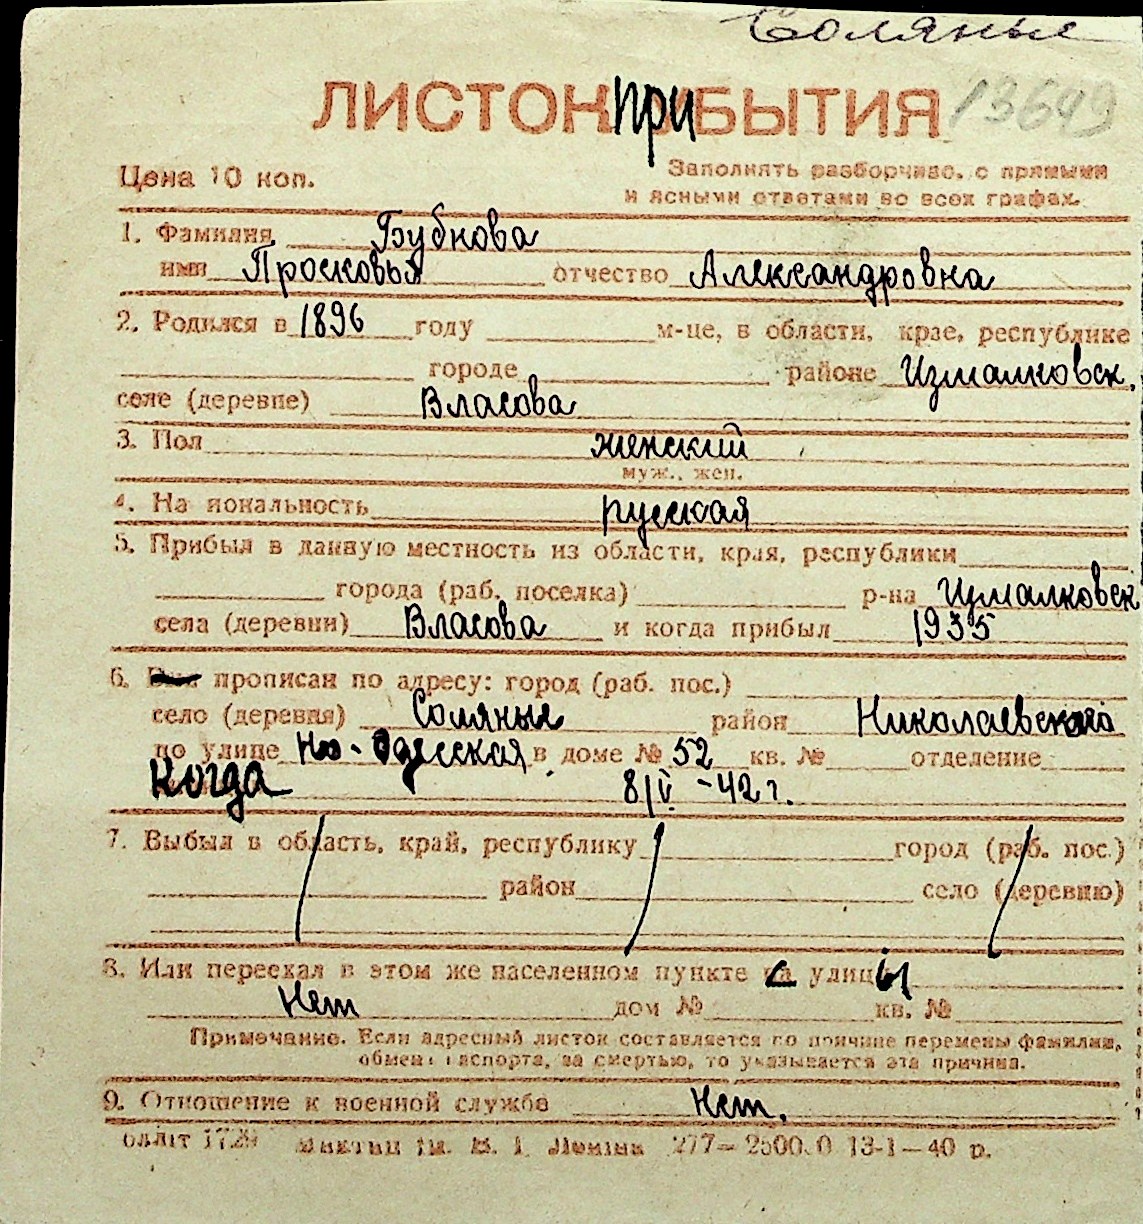 Соляные
ЛИСТОК ПРИБЫТИЯ 13649
Цена 10 коп.
Заполнять разборчиво, с прямыми
и ясными ответами во всех графах.
1. Фамилия Бубнова
имя Просковья отчество Александровна
2. Родился в 1896 году м-це, в области, крае, республике
городе районе Измалковск.
селе (деревне) Власова
3. Пол женский
муж., жен.
4. На иональность русская
5. Прибыл в данную местность из области, края, республики
города (раб. поселка) р-на Измалковск
села (деревни) Власова и когда прибыл 1935
6. прописан по адресу: город (раб. пос.)
село (деревня) Соляные район Николаевского
по улице Но-Одесская в доме № 52 кв. № отделение
Когда 8/V-42 г.
7. Выбыл в область, край, республику город (раб. пос.)
район село (деревню)
8. Или переехал в этом же населенном пункте с улицы
Нет дом № кв. №
Примечание. Если адресный листок составляется по причине перемены фамилии,
обмена паспорта, за смертью, то указывается эта причина.
9. Отношение к военной службе Нет.
277—2500.0 13-1—40 р.